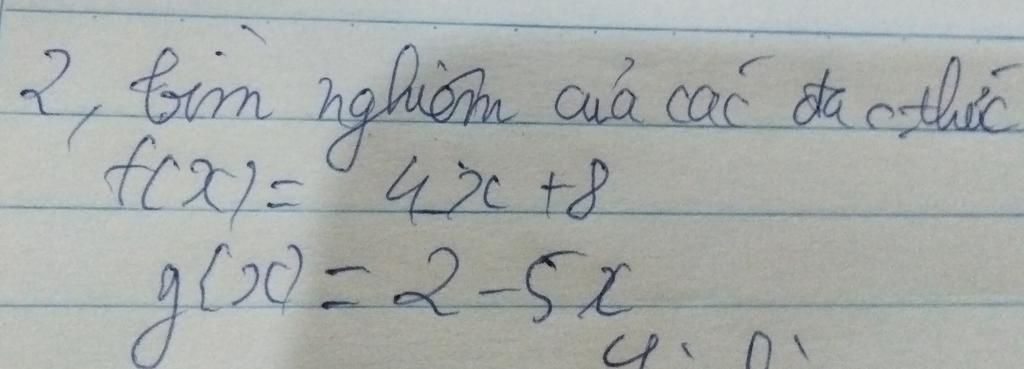 2, tìm nghiệm của các đa thức
f(x) = 4x + 8
g(x) = 2 - 5x